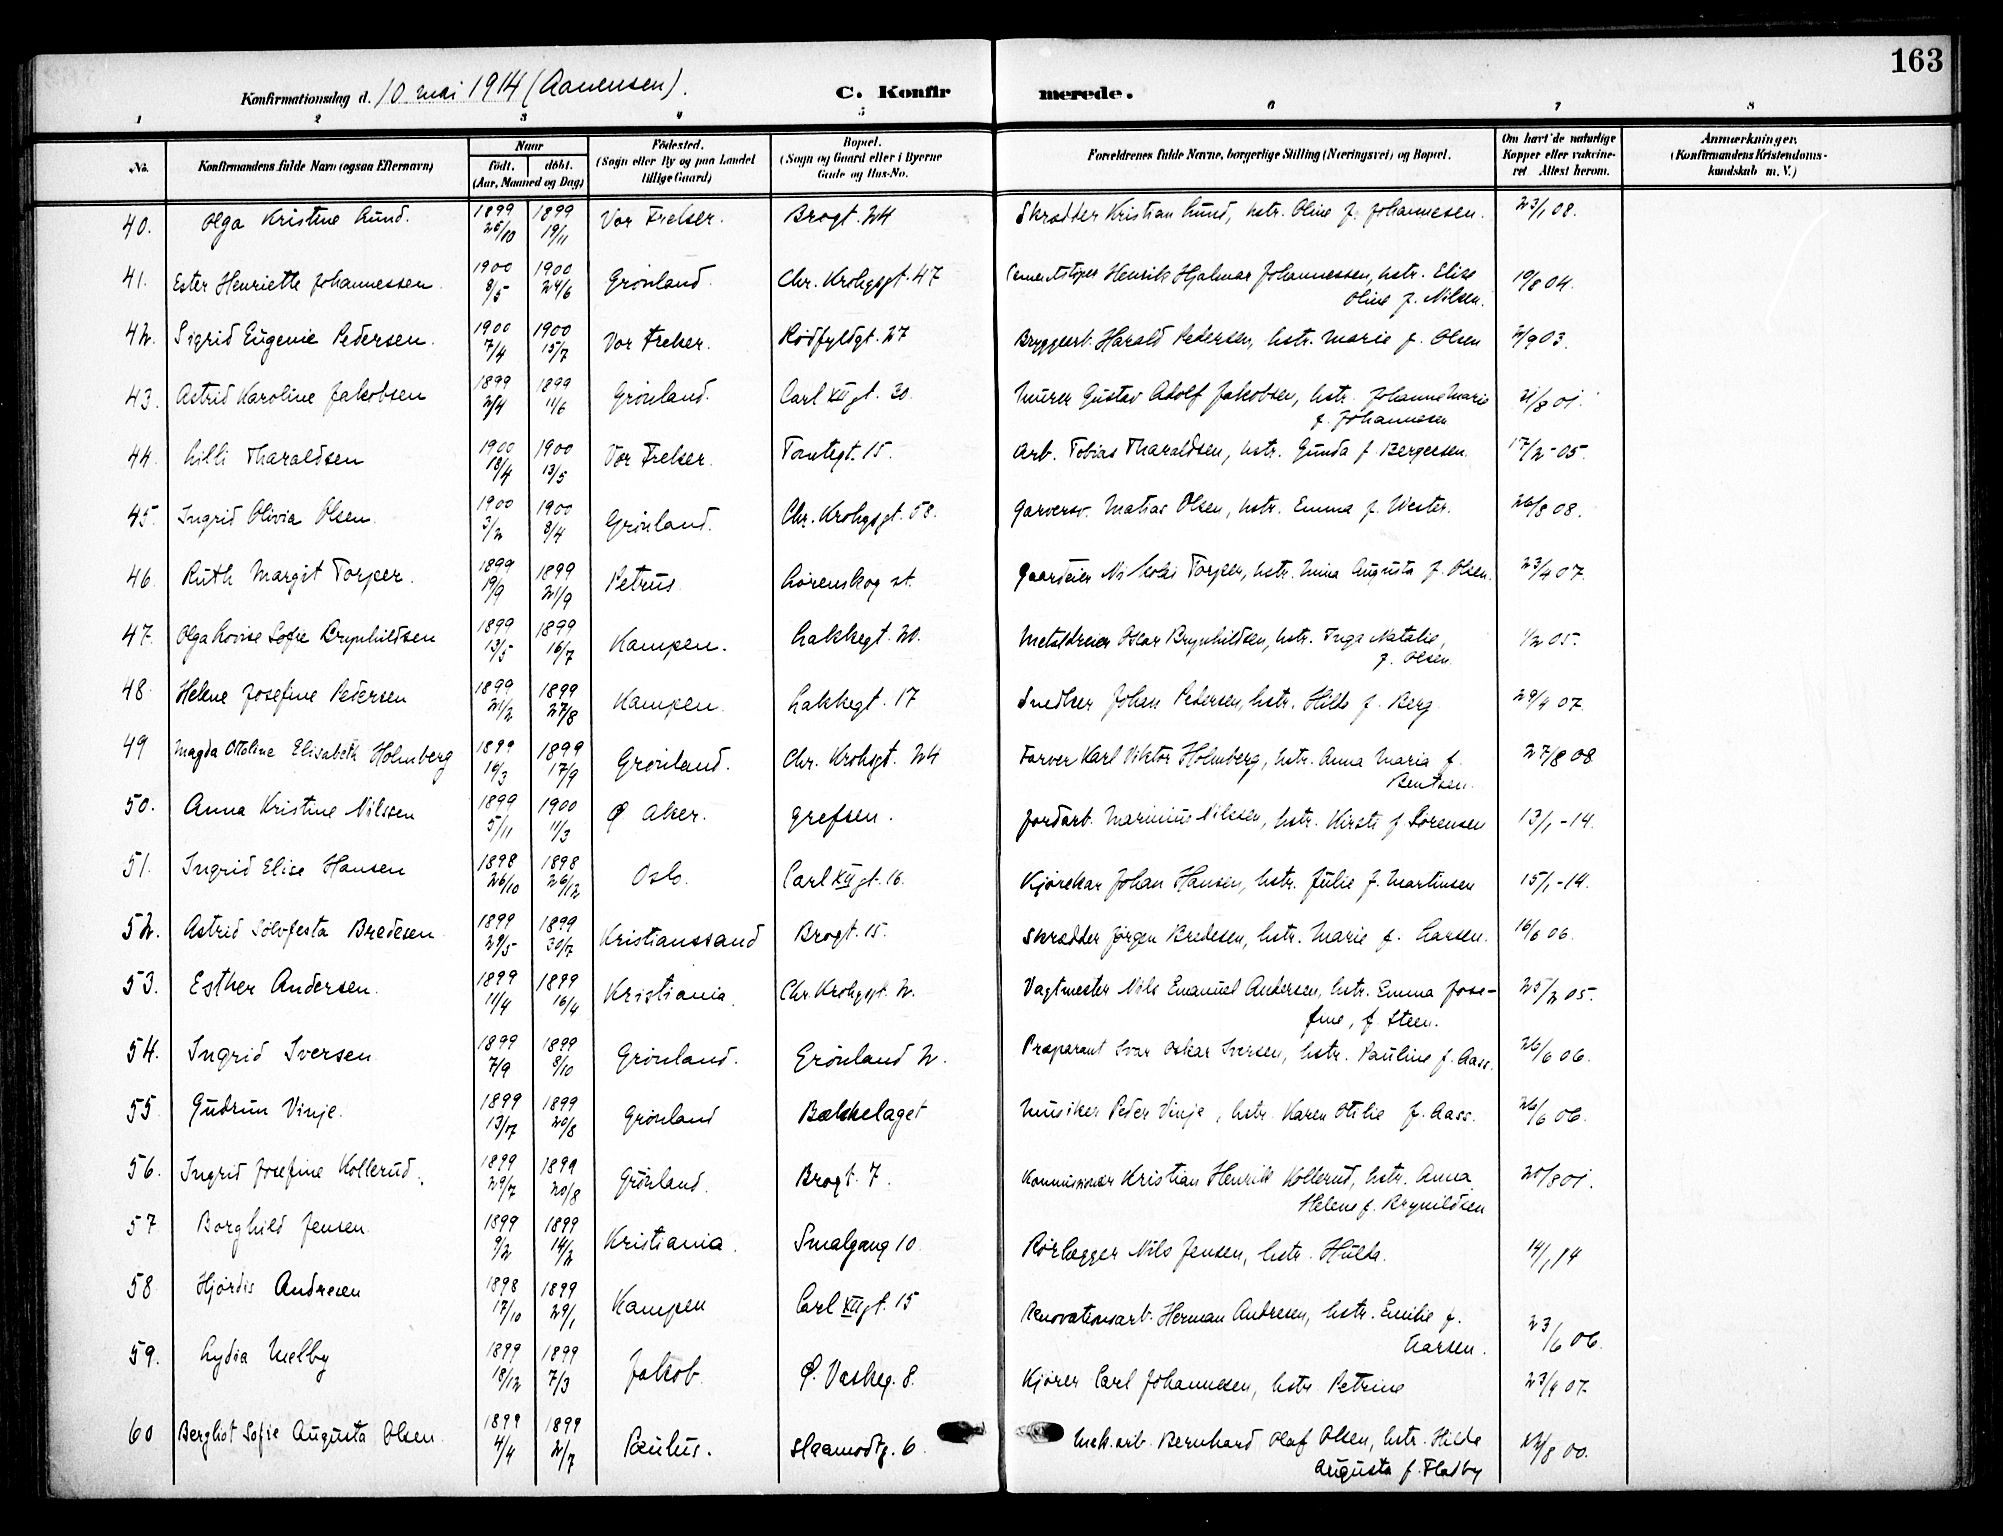 163
Konfirmationsdag d. 10 mai 1914 (Aanensen). C. Konfirmerede.
1 2 3 4 5 6 7 8
No. Konfirmandens fulde Navn (ogsaa Efternavn) Naar født. døbt. (Aar, Maaned og Dag) Fødested. (Sogn eller By og paa Landet tillige Gaard) Bopæl. (Sogn og Gaard eller i Byerne Gade og Hus-No. Forældrenes fulde Navne, borgerlige Stilling (Næringsvei) og Bopæl. Om havt de naturlige Kopper eller vakcineret. Attest herom. Anmærkninger. (Konfirmandens Kristendomskundskab m. V.)
40. Olga Kristine Lund. 1899 26/10 1899 19/11 Vor Frelser. Brogt. 24 Skrædder Kristian Lund, hstr. Oline f. Johannesen. 23/1 08.
41. Ester Henriette Johannessen. 1900 8/5 1900 24/6 Grønland. Chr. Krohgsgt. 47 Cementstøper Henrik Hjalmar Johannessen, hstr. Elise
Oline f. Nilsen. 19/8 04.
42. Sigrid Eugenie Pedersen. 1900 7/4 1900 15/7 Vor Frelser. Rødfyldgt. 27 Bryggearb. Harald Pedersen, hstr. Marie f. Olsen 2/9 03.
43. Astrid Karoline Jakobsen 1899 2/4 1899 11/6 Grønland. Carl XII gt. 30. Murer Gustav Adolf Jakobsen, hstr. Johanne Marie
f. Johannesen 21/8 01.
44. Lilli Tharaldsen 1900 18/4 1900 13/5 Vor Frelser. Tomtegt. 15. Arb. Tobias Tharaldsen, hstr. Gunda f Bergersen. 17/2 - 05.
45. Ingrid Olivia Olsen. 1900 3/2 1900 8/4 Grønland. Chr. Krohgsgt. 58. Garversv. Matias Olsen, hstr. Emma f. Wester. 26/8 08.
46. Ruth Margit Torper. 1899 19/9 1899 21/9 Petrus Lørenskog st. Gaardeier Nikolai Torper, hstr. Mina Augusta f. Olsen. 23/4 07.
47. Olga Lovise Sofie Brynhildsen 1899 13/5 1899 16/7 Kampen. Lakkegt. 20. Metaldreier Oscar Brynhildsen, hstr. Inga Natalie,
f. Olsen. 1/2 05.
48. Helene Josefine Pedersen 1899 21/2 1899 27/8 Kampen. Lakkegt. 17 Snedker Johan Pedersen, hstr. Hilda f. Berg. 29/4 07.
49 Magda Ottoline Elisabeth Holmberg 1899 16/3 1899 17/9 Grønland. Chr. Krohsgt. 24 Farver Karl Viktor Holmberg, hstr. Anna Maria f.
Bentsen. 27/8 08
50. Anna Kristine Nilssen 1899 5/11 1900 11/3 Ø Aker. Grefsen. Jordarb. Marinius Nilssen, hstr. Kirsti f Sørensen 13/1 - 14.
51. Ingrid Elise Hansen 1898 26/10 1898 26/12 Oslo. Carl XII gt. 16. Kjørekar Johan Hansen, hstr. Julie f. Martinsen 15/1 - 14.
52. Astrid Sølvfesta Bredesen 1899 29/5 1899 30/7 Kristianssand Brogt. 15. Skrædder Jørgen Bredesen, hstr. Marie f. Larsen. 16/6 06.
53. Esther Andersen. 1899 11/4 1899 16/4 Kristiania. Chr. Krohgsgt. 2. Vagtmester Nils Emanuel Andersen, hstr. Emma Jose-
fine, f. Steen. 25/2 05.
54. Ingrid Iversen 1899 7/9 1899 8/10 Grønland. Grønland 2. Præparant Ivar Oskar Iversen, hstr. Pauline f. Aass. 26/6 06.
55 Gudrun Vinje. 1899 13/7 1899 20/8 Grønland Bækkelaget Musiker Peder Vinje, hstr. Karen Otilie f. Aass. 26/6 06.
56. Ingrid Josefine Kollerud. 1899 29/7 1899 20/8 Grønland. Brogt. 7. Kommissionær Kristian Henrik Kollerud, hstr. Anna
Helene f. Brynildsen 20/8 01.
57 Borghild Jensen 1899 9/2 1899 14/2 Kristiania. Smalgang 10. Rørlægger Nils Jensen, hstr. Hulda. 14/1 14
58 Hjørdis Andresen 1898 17/10 1899 29/1 Kampen Carl XII gt. 15 Renovationsarb. Herman Andresen, hstr. Emilie f.
Larsen. 23/6 06.
59. Lydia Melby 1899 18/12 1899 7/3 Jakob. Ø. Vaskeg. 8. Kjører Carl Johannesen, hstr. Petrine 23/9 07.
60 Bergliot Sofie Augusta Olsen. 1899 4/4 1899 2/7 Paulus. Haamodtg. 6. Mek. arb. Bernhard Olaf Olsen, hstr. Hilda
Augusta f. Fladby 22/8 00.